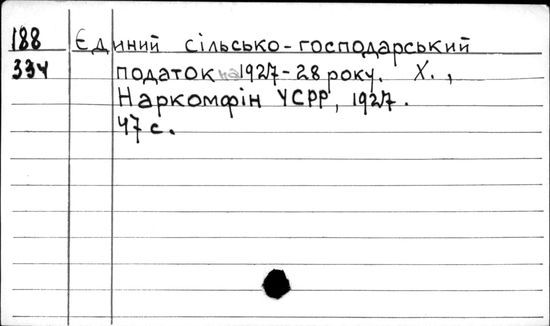 188 Єдиний сільсько-господарський
334 податок на 1927-28 року. Х.,
Наркомфін УСРР, 1927.
47 с.